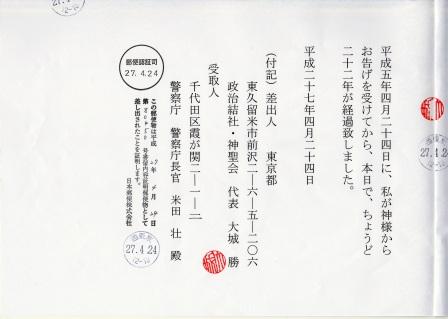 平成五年四月二十四日に、私が神様から
お告げを受けてから、本日で、ちょうど
二十二年が経過致しました。
平成二十七年四月二十四日
(付記)差出人 東京都
東久留米市前沢二―六―五―二〇六
政治結社・神聖会 代表 大城 勝
受取人
千代田区霞が関二―一―二
警察庁 警察庁長官 米田 壮 殿
郵便認証司
27.4.24
この郵便物は平成 27 年 4 月 24 日
第 号書留内容証明郵便物として
差し出されたことを証明します。
日本郵便株式会社
27.4.24
12-18
27.4.24
12-18
12-18